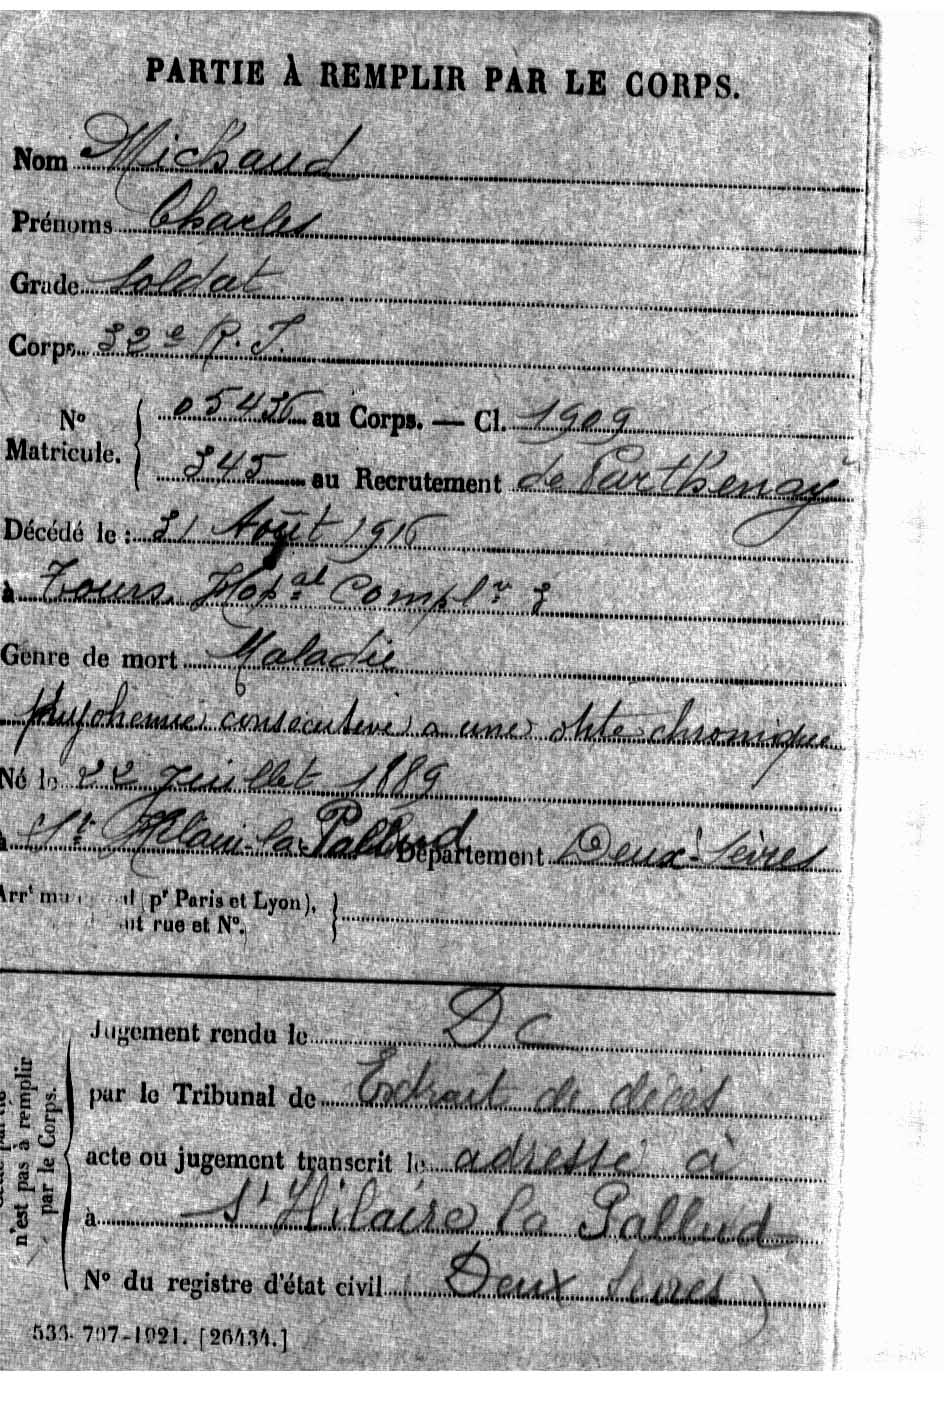 PARTIE À REMPLIR PAR LE CORPS.
Nom Michaud
Prénoms Charles
Grade Soldat
Corps 32e R. I.
No Matricule. 05436 au Corps. — Cl. 1909
345 au Recrutement de Parthenay
Décédé le : 31 Août 1916
à Tours. Hopal Complre 3
Genre de mort Maladie
consécutive a une otite chronique
Né le 22 Juillet 1889
à St Hilaire-la-Pallud Département Deux-Sèvres
Arrt (pr Paris et Lyon),
rue et No.
Jugement rendu le D C
par le Tribunal de Extrait de décès
acte ou jugement transcrit le adressé à
à St Hilaire la Pallud
No du registre d'état civil (Deux Sèvres)
n'est pas à remplir
par le Corps.
533-707-1921. [26434.]